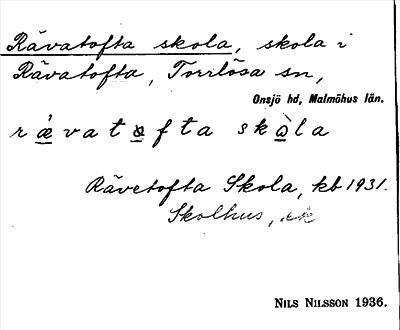 Rävatofta skola, skola i
Rävatofta, Torrlösa sn,
Onsjö hd, Malmöhus län.
r ä́ v a t ɷ f t a s k ɷ̀ l a
Rävetofta Skola, kb 1931.
Skolhus, ek
NILS NILSSON 1936.